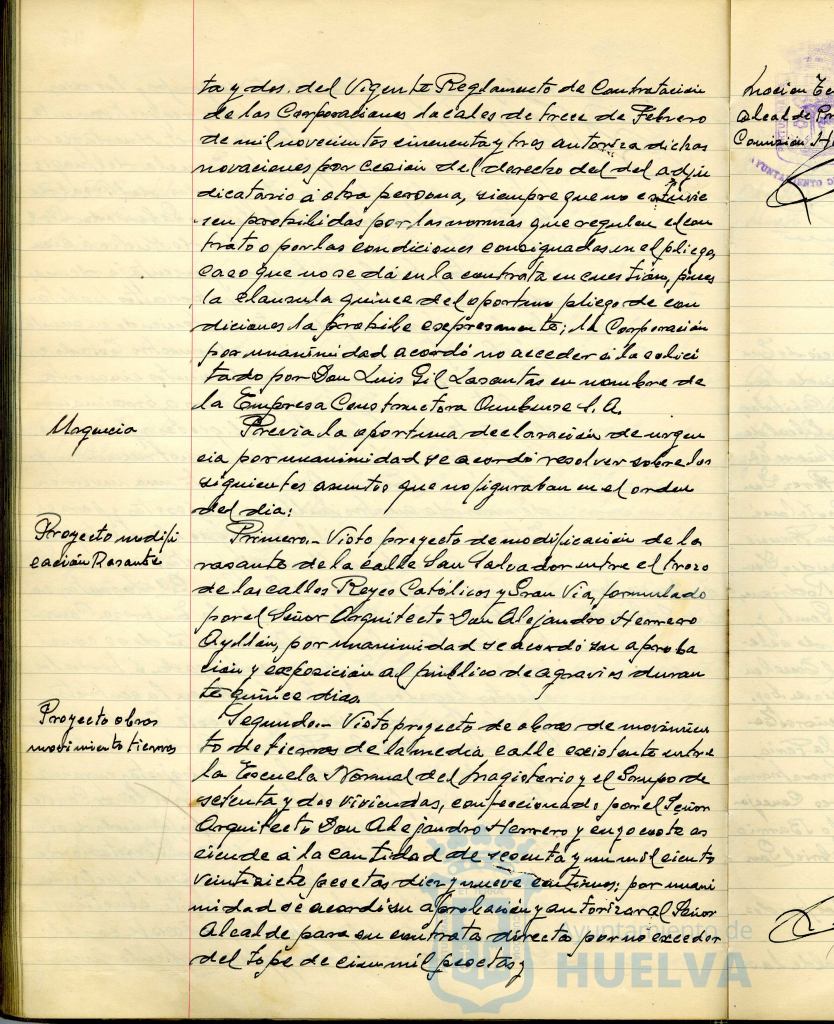 ta y dos. del Vigente Reglamento de Contratación
de las Corporaciones locales de trece de Febrero
de mil novecientos cincuenta y tres autoriza dichas
novaciones por cesión del derecho del del adju
dicatario á otra persona, siempre que no estuvie
sen prohibidas por las normas que regulen el con
trato o por las condiciones consignadas en el pliego,
caso que no se dá en la contrata en cuestión, pues
la clausula quince del oportuno pliego de con
diciones la prohibe expresamente; la Corporación
por unanimidad acordó no acceder á lo solici
tado por Don Luis Gil Lasantas en nombre de
la Empresa Constructora Onubense S.A.
Urgencia
Previa la oportuna declaración de urgen
cia por unanimidad se acordó resolver sobre los
siguientes asuntos que no figuraban en el orden
del dia:
Proyecto modifi
cación Rasante
Primero.- Visto proyecto de modificación de la
rasante de la calle San Salvador entre el trozo
de las calles Reyes Católicos y Gran Via, formulado
por el Señor Arquitecto Don Alejandro Herrero
Ayllón, por unanimidad se acordó su aproba
ción y exposición al público de agravios duran
te quince dias.
Proyecto obras
movimiento tierras
Segundo.- Visto proyecto de obras de movimien
to de tierras de la media calle existente entre
la Escuela Normal del Magisterio y el Grupo de
setenta y dos viviendas, confeccionado por el Señor
Arquitecto Don Alejandro Herrero y cuyo coste as
ciende á la cantidad de sesenta y un mil ciento
veintisiete pesetas diez y nueve centimos; por unani
midad se acordó su aprobación y autorizar al Señor
Alcalde para su contrata directa por no exceder
del tope de cien mil pesetas y
Ayuntamiento de
HUELVA